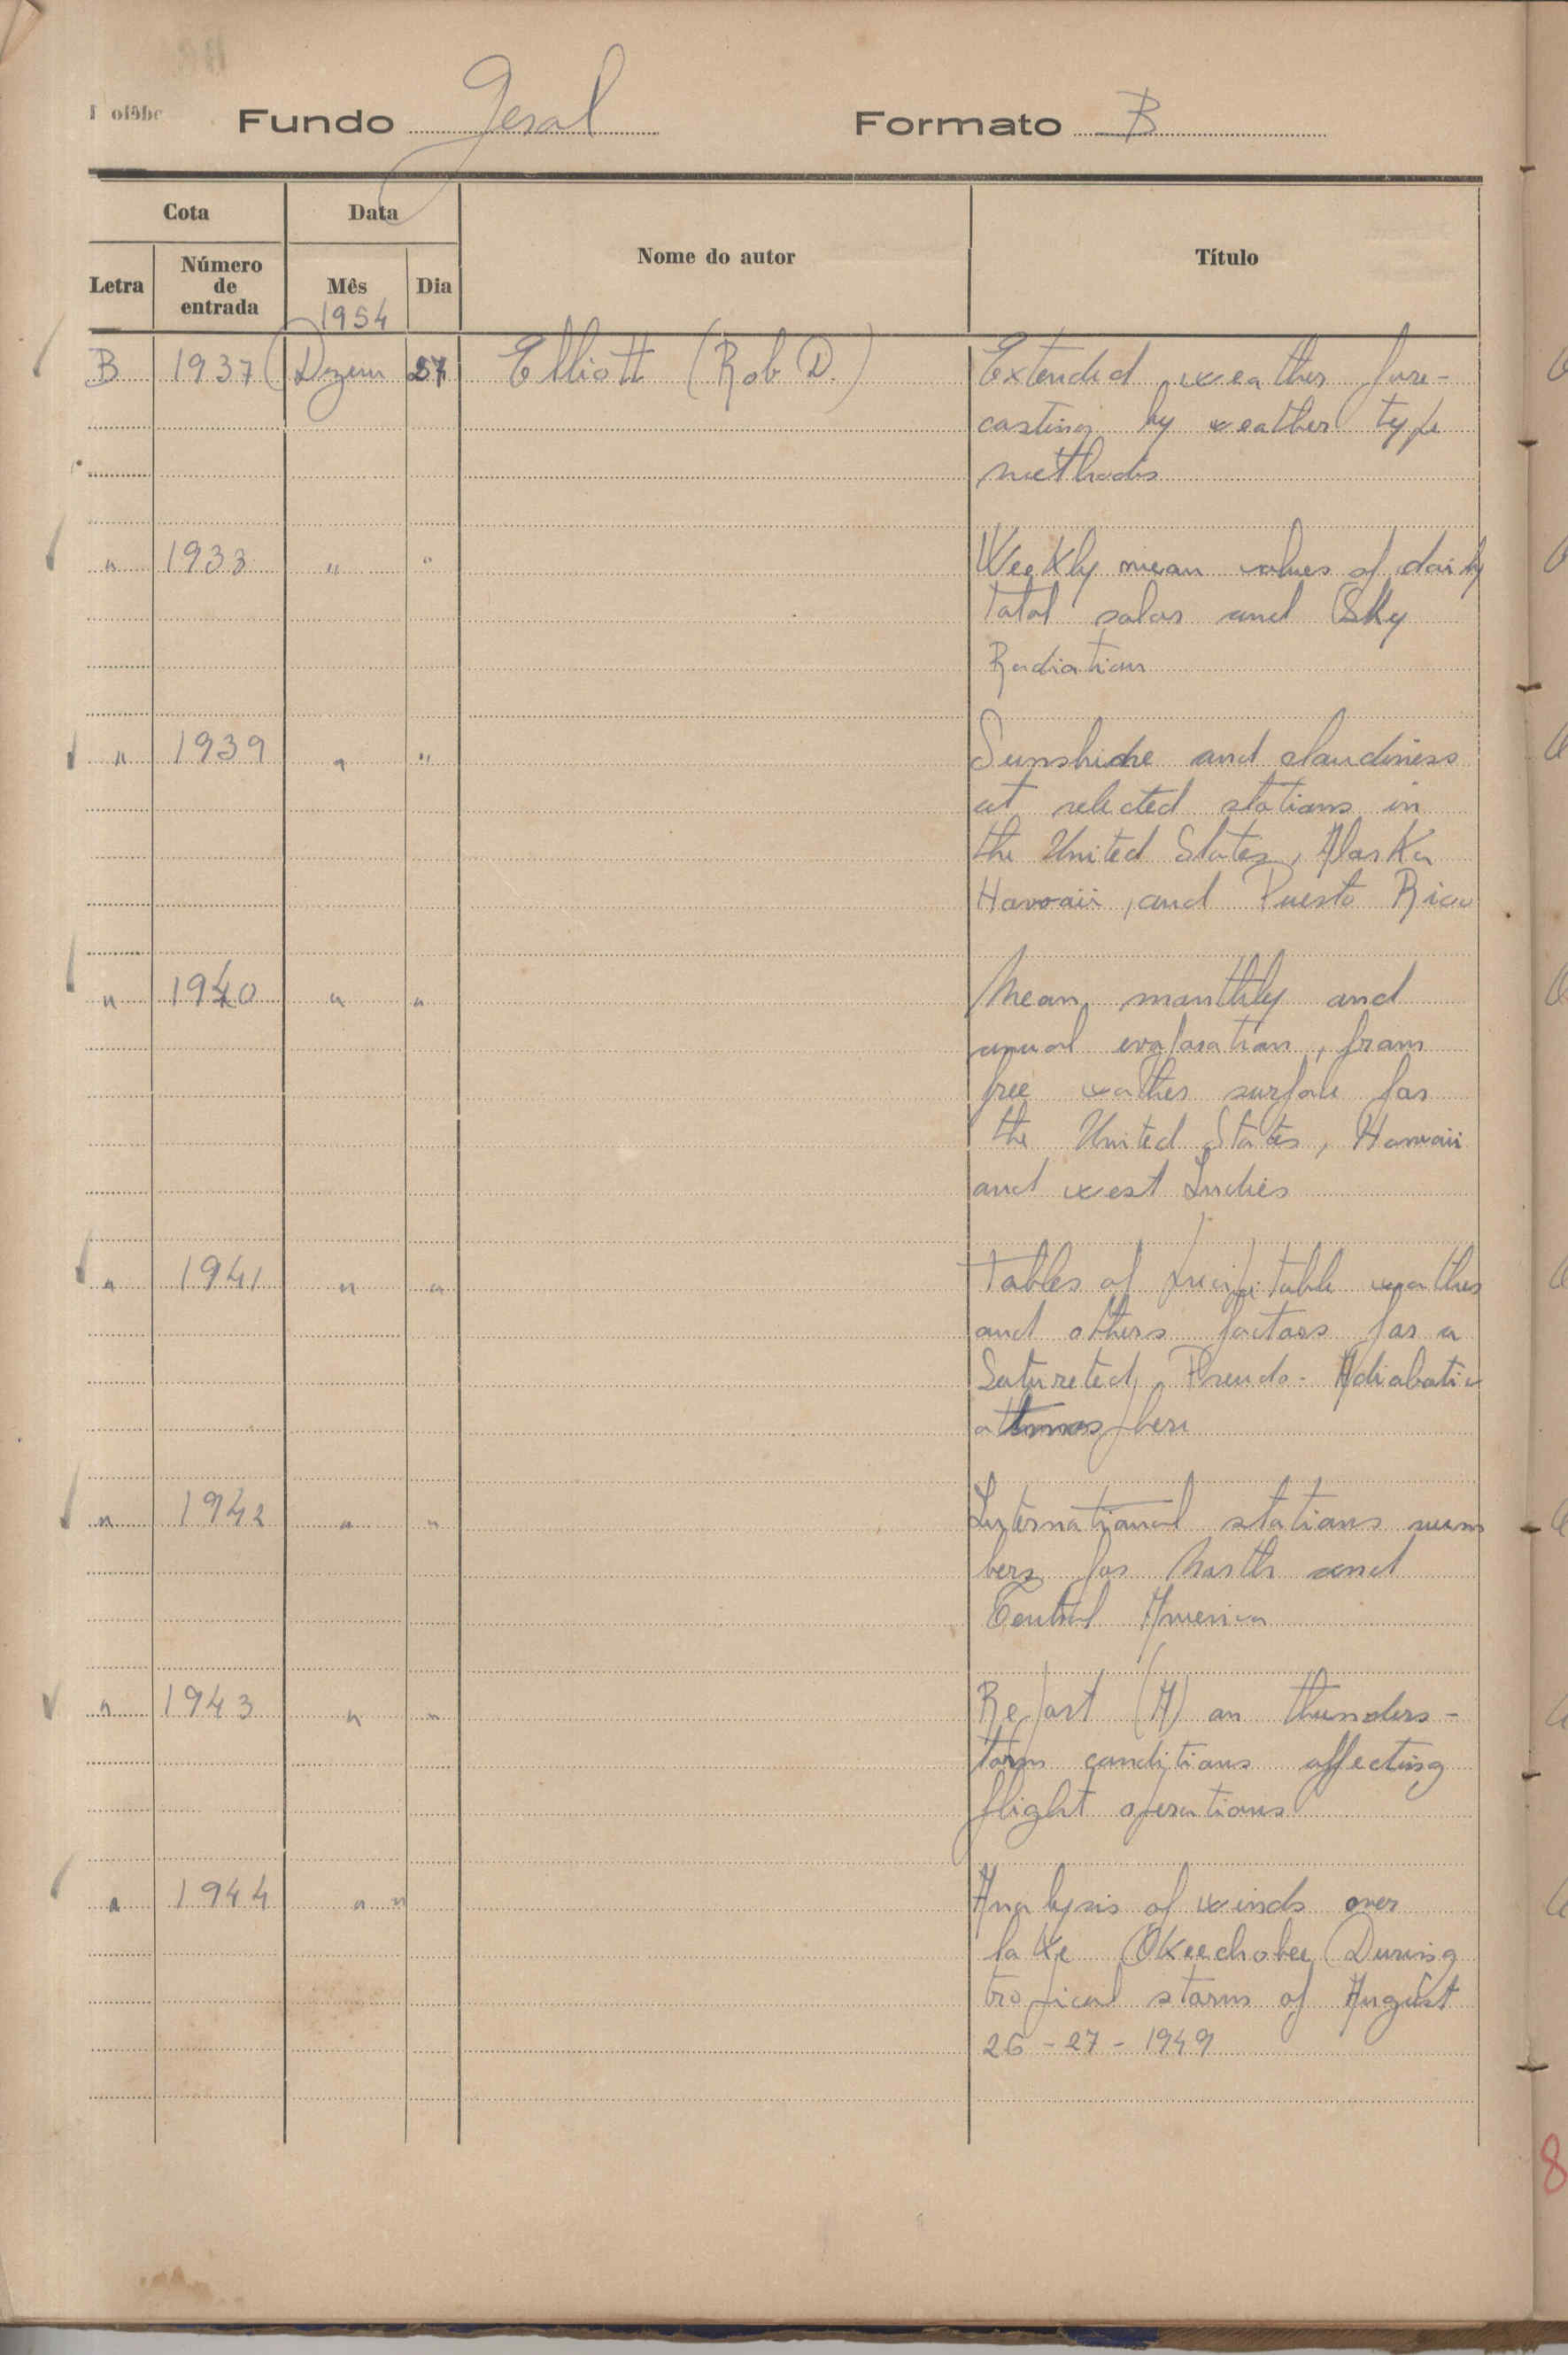 Fundo Geral Formato B
Cota Data Nome do autor Título
Letra Número de entrada Mês Dia
1954
B 1937 Dezem 27 Elliott (Rob D.) Extended weather fore-
casting by weather type
methods
" 1933 " " Weekly mean values of daily
total solar and Sky
Radiation
" 1939 " " Sunshine and claudiness
at selected stations in
the United States, Alaska
Hawaii, and Puesto Rico
" 1940 " " Mean monthly and
anual evaporation, from
free wather surface for
the United States, Hawaii
and west Indies
" 1941 " " Tables of precipitable wather
and others factors for a
Satureted Pseudo-Adiabatic
attmosphere
" 1942 " " International stations num
bers for North and
Central America
" 1943 " " Report (A) on thunders-
torm conditions affecting
flight operations
" 1944 " " Analysis of winds over
lake Okeechobee During
tropical storm of August
26-27-1949
8